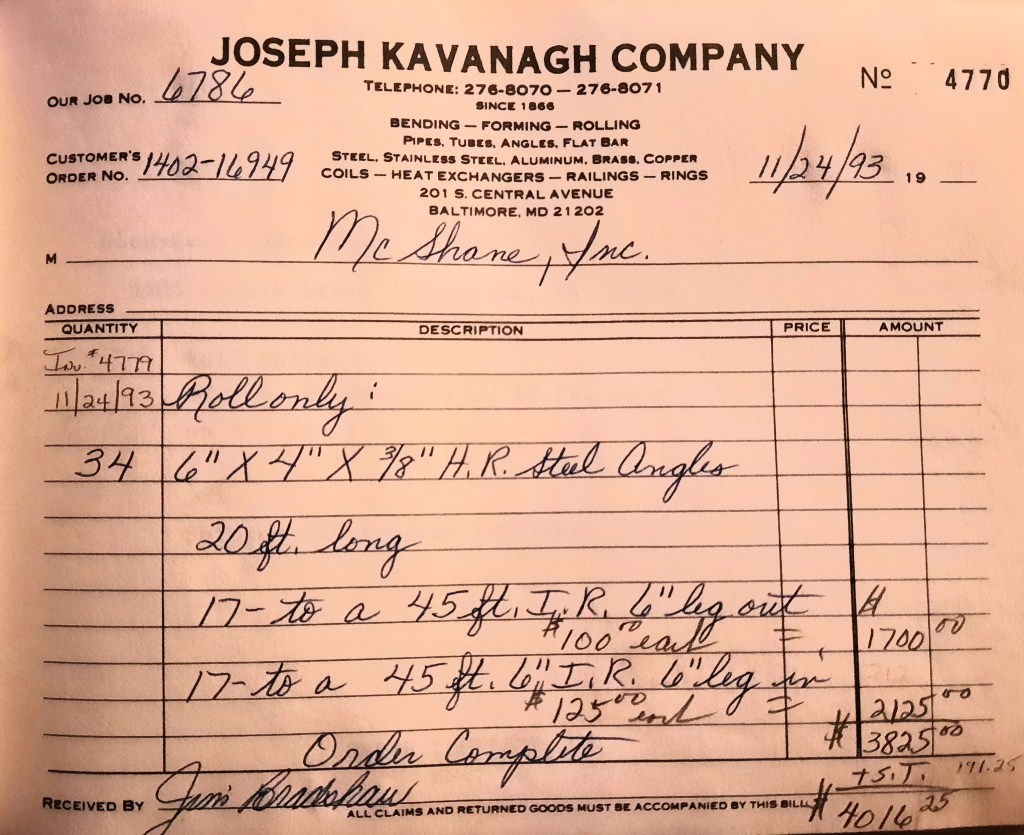 JOSEPH KAVANAGH COMPANY
OUR JOB NO. 6786
TELEPHONE: 276-8070 — 276-8071
Nº 4770
SINCE 1866
BENDING — FORMING — ROLLING
PIPES, TUBES, ANGLES, FLAT BAR
CUSTOMER'S ORDER NO. 1402-16949
STEEL, STAINLESS STEEL, ALUMINUM, BRASS, COPPER
COILS — HEAT EXCHANGERS — RAILINGS — RINGS
11/24/93 19
201 S. CENTRAL AVENUE
BALTIMORE, MD 21202
M McShane, Inc.
ADDRESS
QUANTITY DESCRIPTION PRICE AMOUNT
Inv. #4779
11/24/93 Roll only:
34 6" X 4" X 3/8" H.R. Steel Angles
20 ft. long
17- to a 45 ft. I.R. 6" leg out $
$100.00 each = 1700 00
17- to a 45 ft. 6" I.R. 6" leg in
$125.00 each = 2125 00
$ 3825 00
Order Complete
+ S.T. 191.25
RECEIVED BY Jim Bradshaw
ALL CLAIMS AND RETURNED GOODS MUST BE ACCOMPANIED BY THIS BILL
$ 4016 25